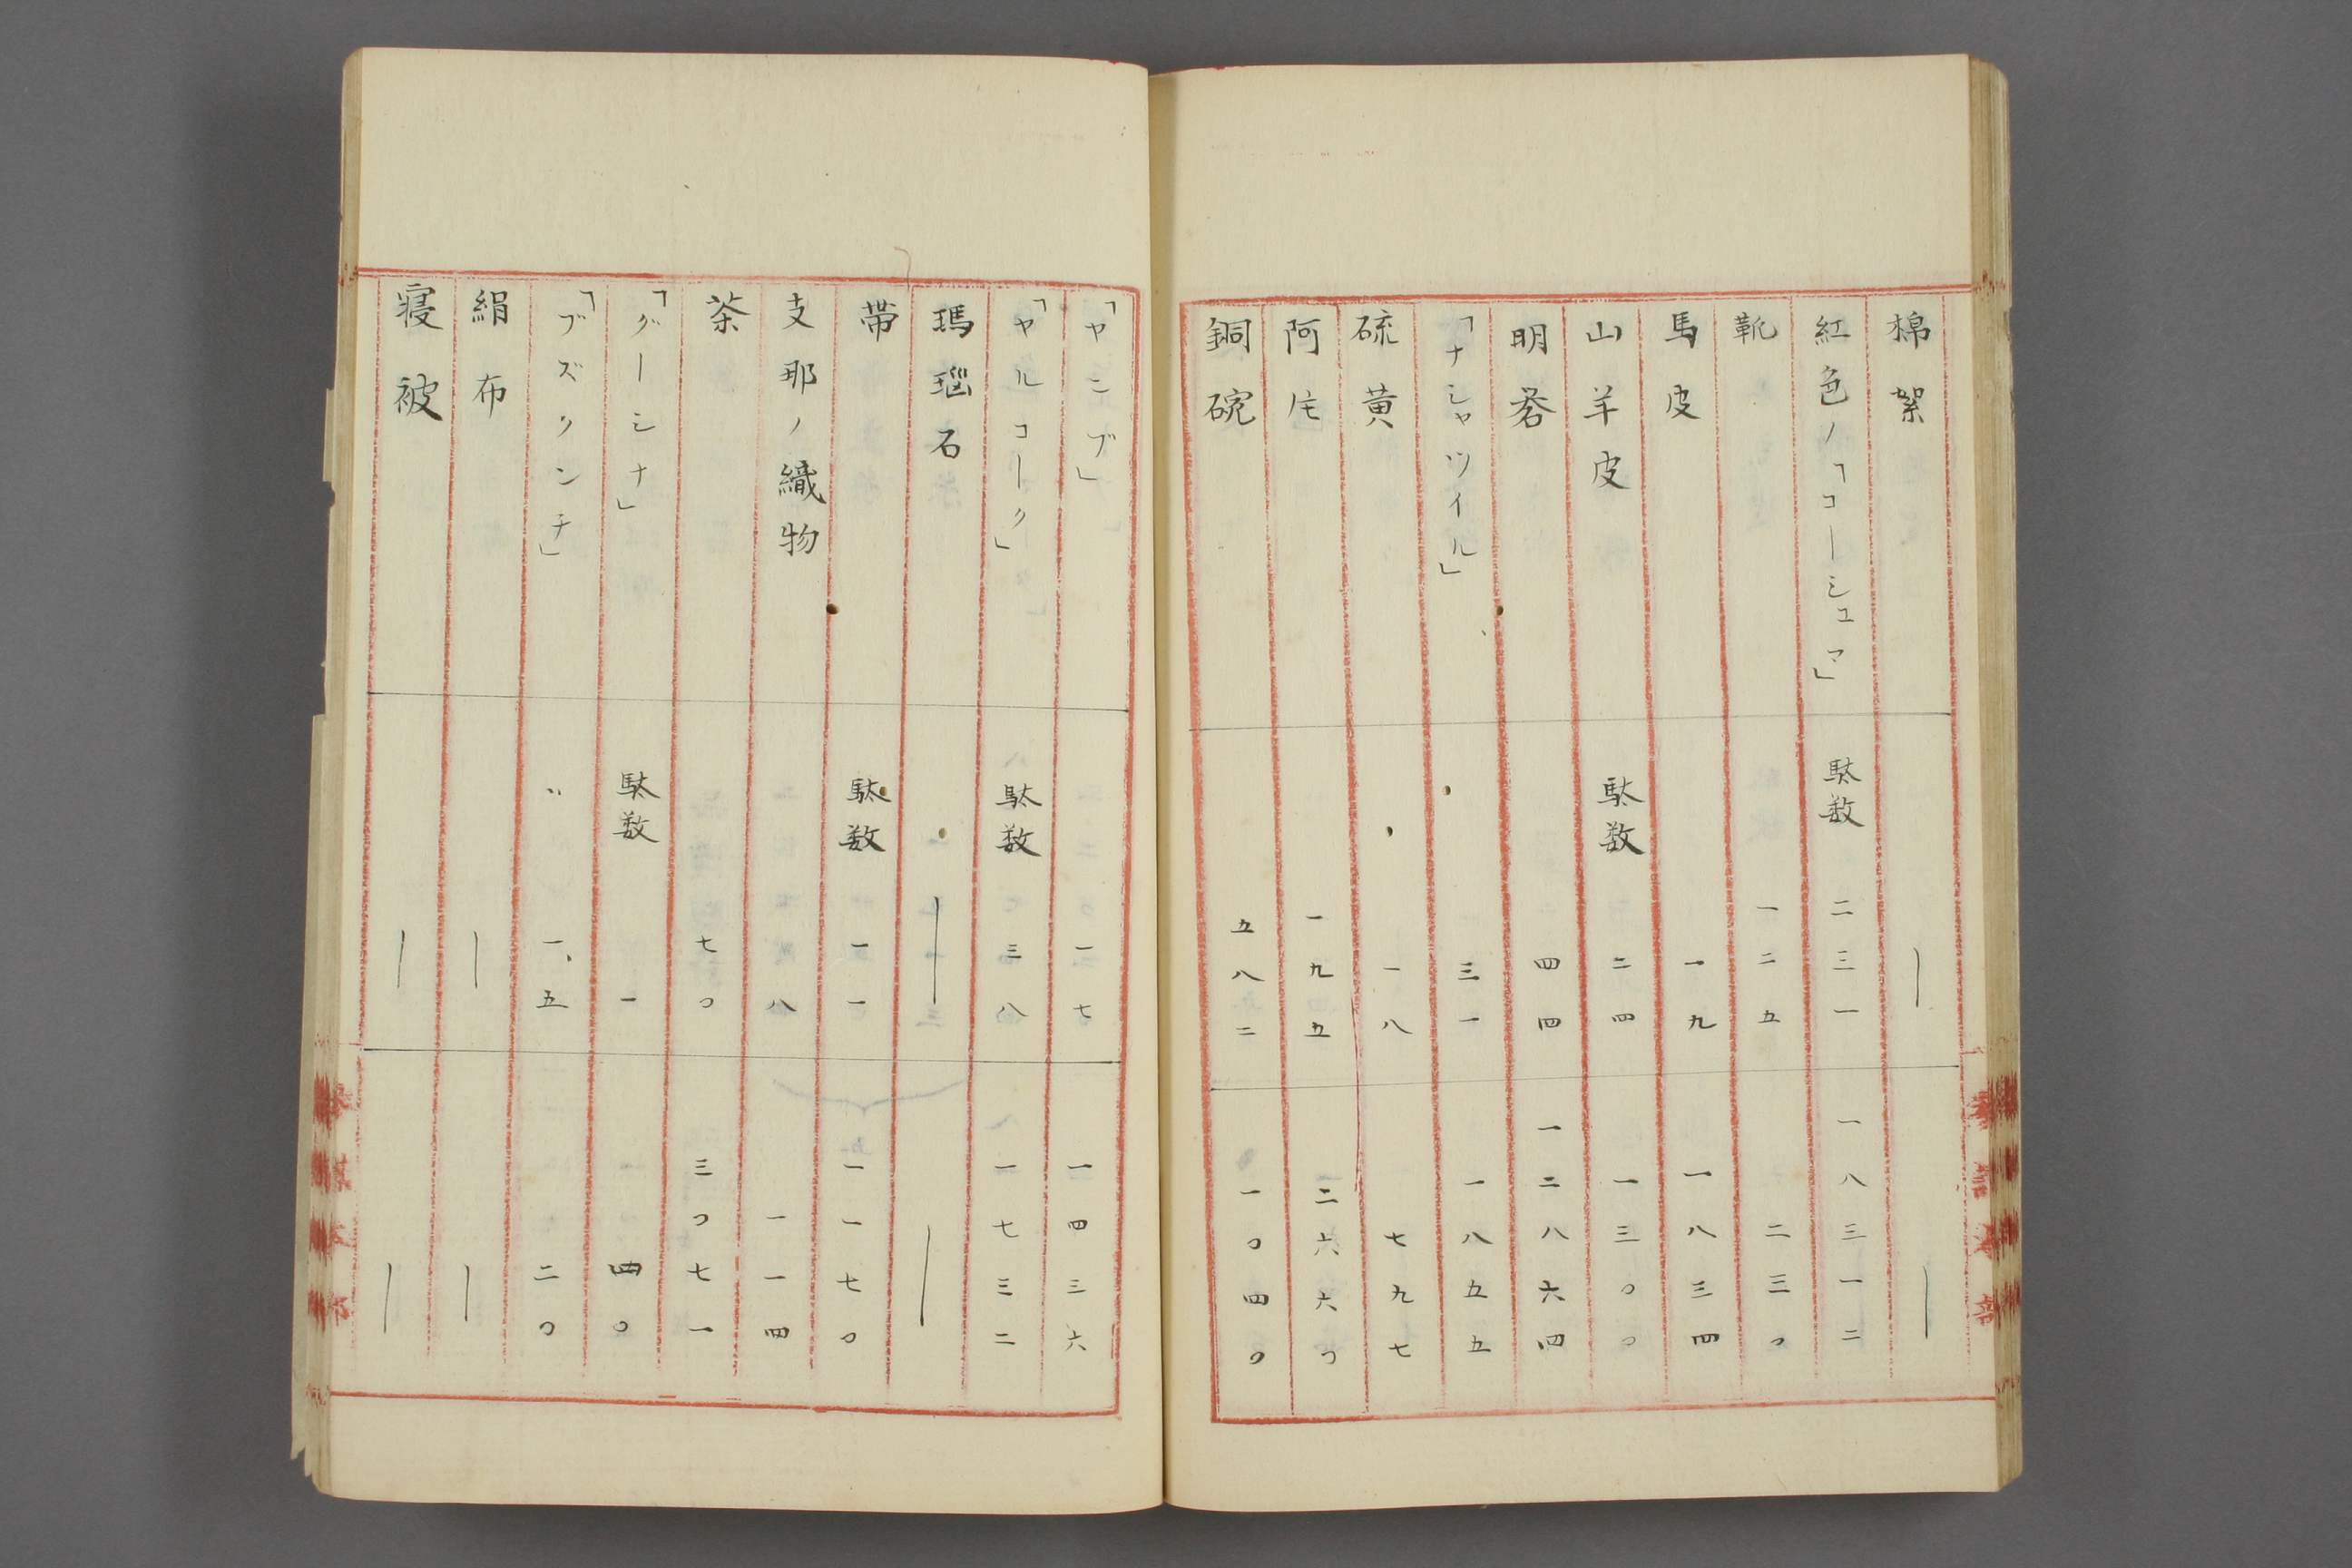 棉絮 ｜ ｜
紅色ノ「コーシュマ」 駄数 二三一 一八三一二
靴 一二五 二三〇
馬皮 一九 一八三四
山羊皮 駄数 二四 一三〇〇
明礬 四四 一二八六四
「ナシャツイル」 三一 一八五五
硫黄 一八 七九七
阿片 一九五 二六六〇
銅碗 五八二 一〇四〇
「ヤシブ」 一七 一四三六
「ヤルコーク」 駄数 三八 一七三二
瑪瑙石 ｜ ｜
帯 駄数 一一 一一七〇
支那ノ織物 八 一一四
茶 七〇 三〇七一
「グーシナ」 駄数 一 四〇
「ブズクンチ」 〃 一、五 二〇
絹布 ｜ ｜
寝被 ｜ ｜